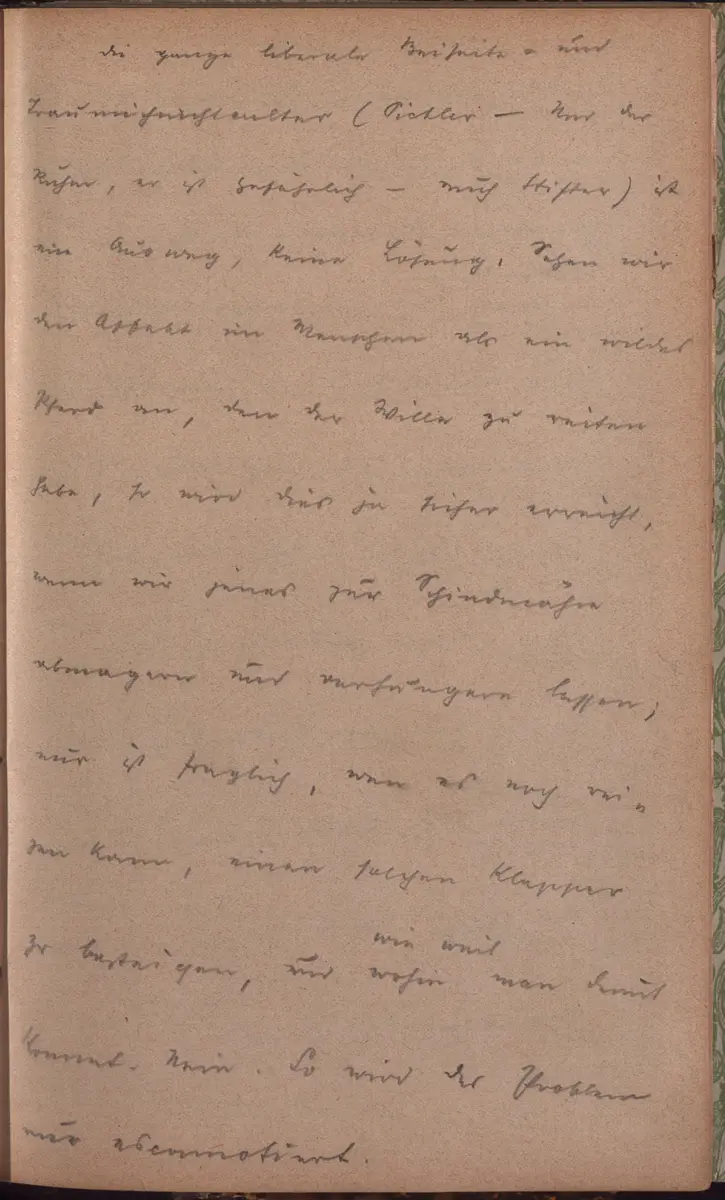 die ganze liberale Beiseite- und
Traumichnichtalter (Sickler – Nur der
Ruhm, er ist gefährlich – auch Stifter) ist
ein Ausweg, keine Lösung. Sehen wir
den Affekt im Menschen als ein wildes
Pferd an, den der Wille zu reiten
habe, so wird dies ja sicher erreicht,
wenn wir jenes zur Schindmähre
abmagern und verhungern lassen;
nur ist fraglich, wen es noch rei-
zen kann, einen solchen Klepper
zu besteigen, und wie weit
wohin man damit
kommt. Nein. So wird das Problem
nur escamotiert.